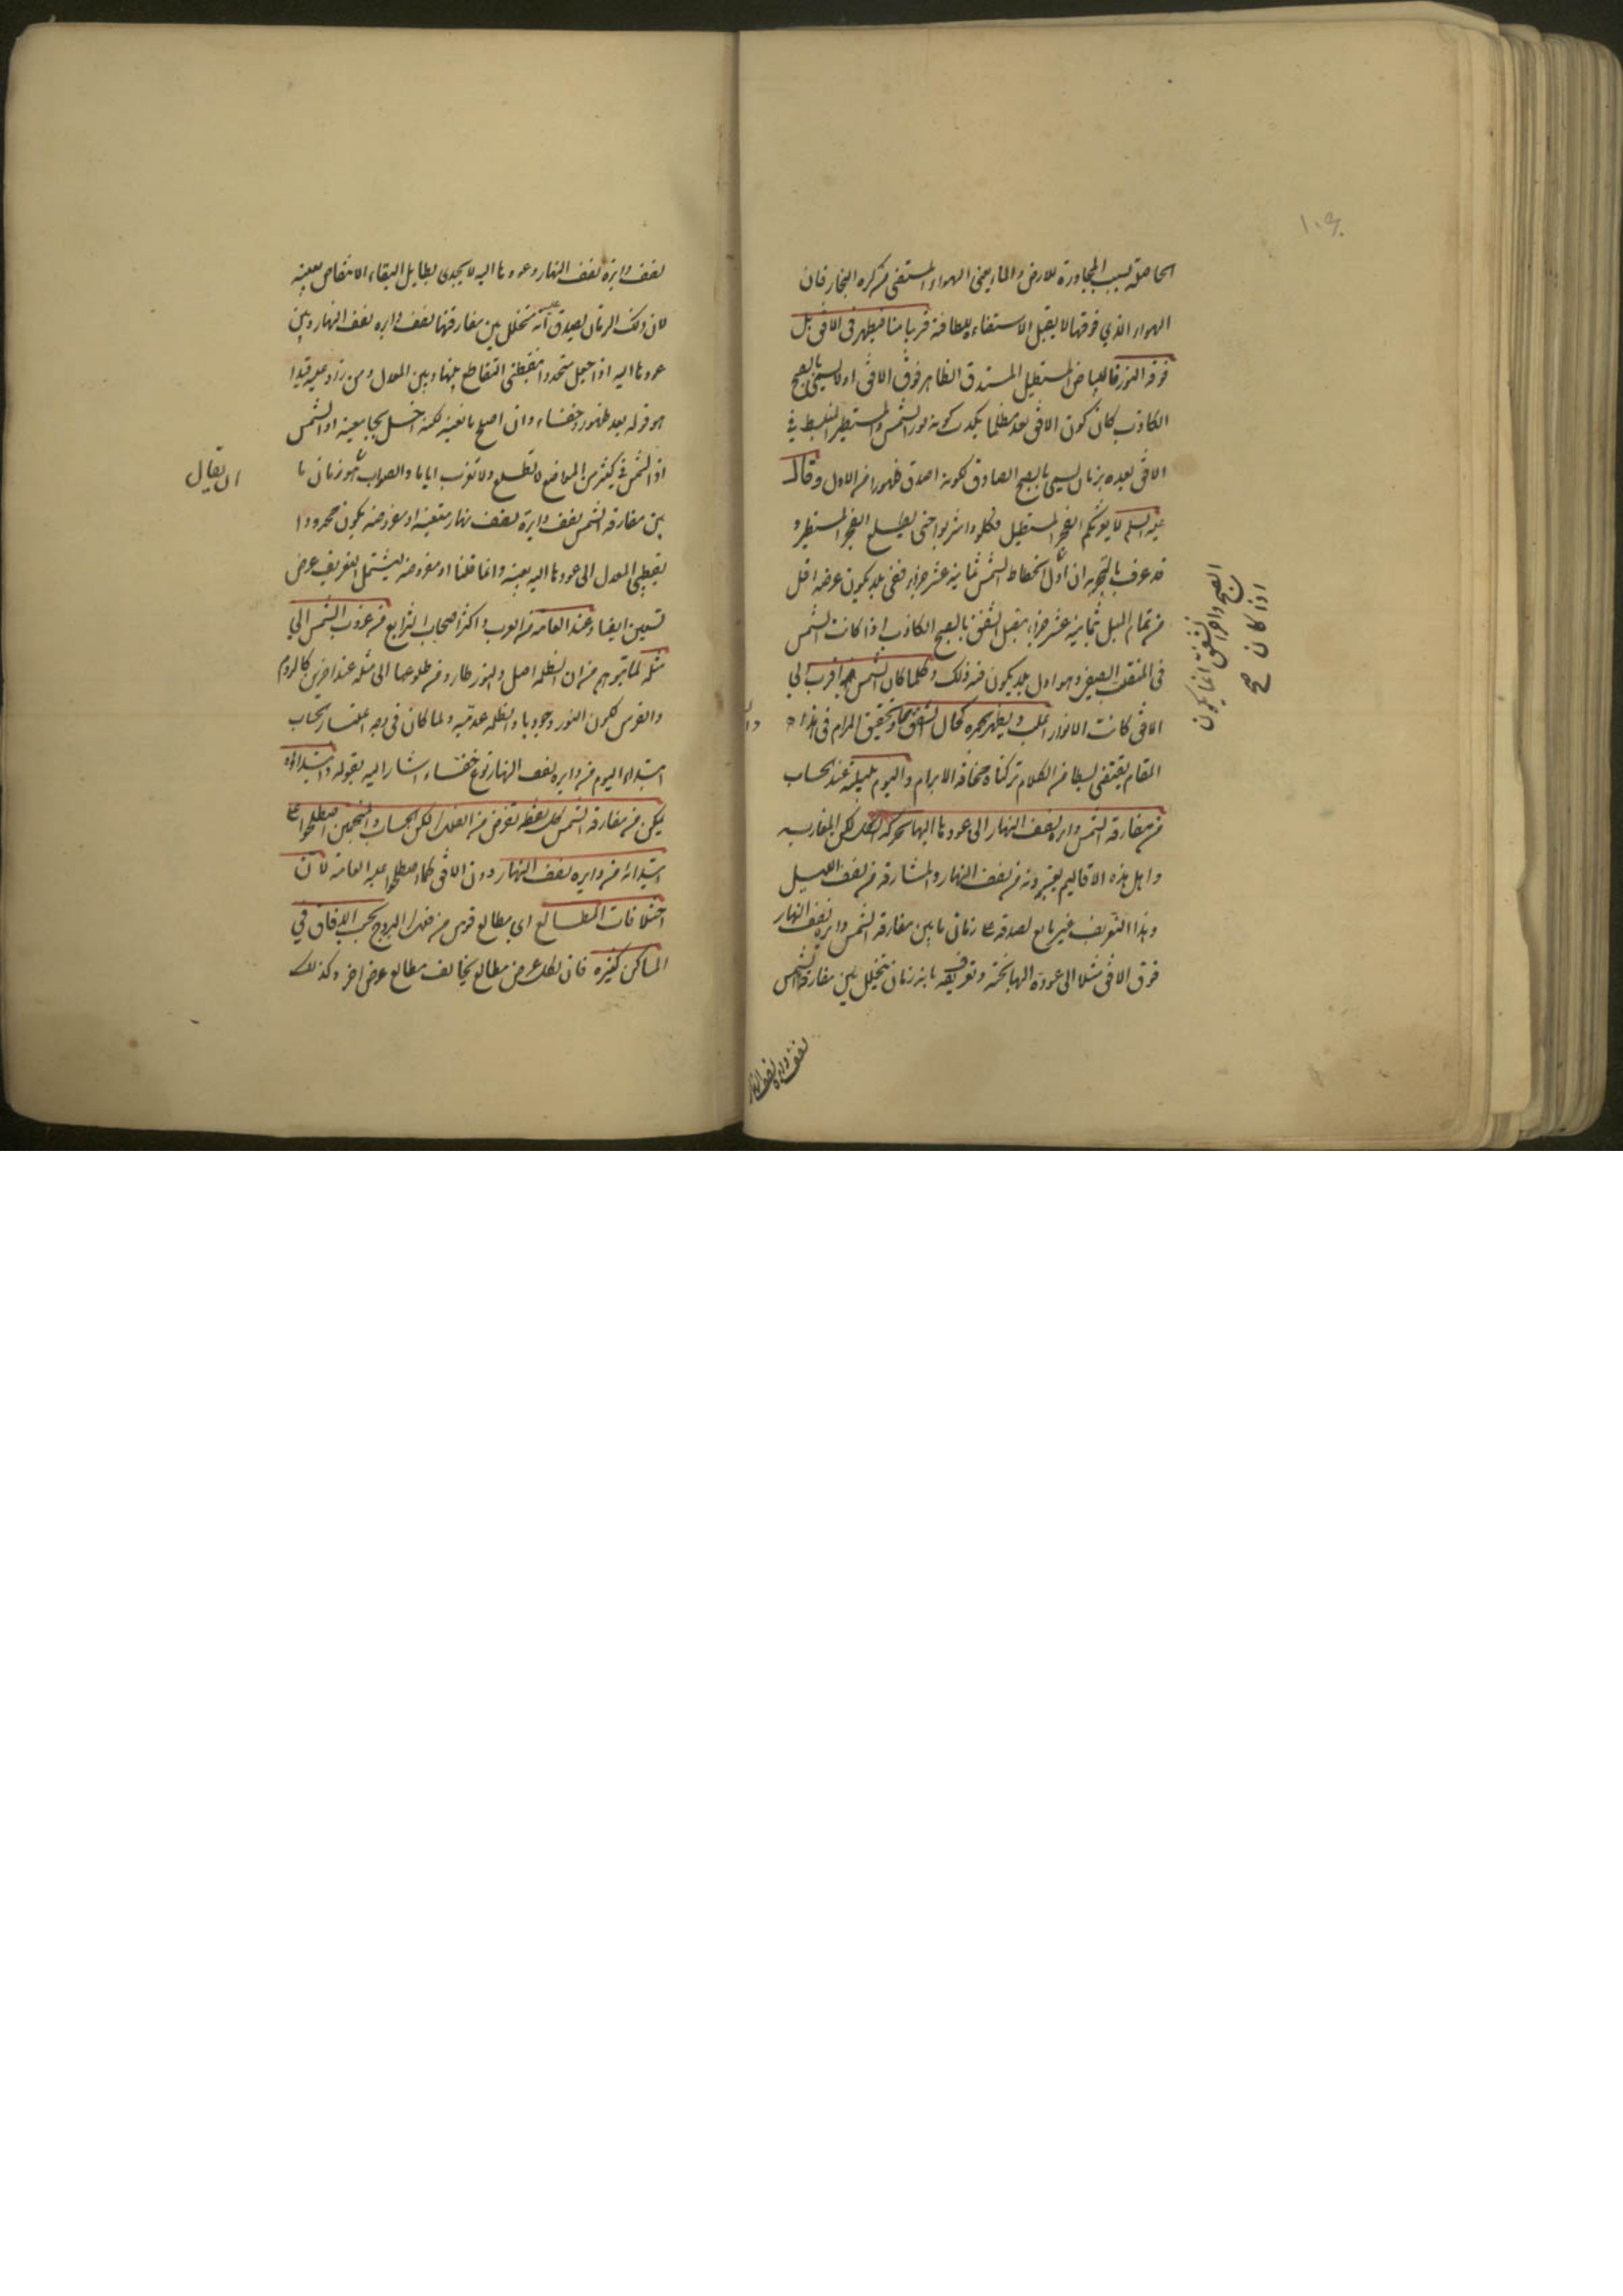 ١٠٩
الحاصلة بسبب المجاورة للارض والماء يعنى الهواء المستضى من كره البخار فان
الهواء الذي فوقها لا يقبل الاستضاءة للطافته قريبا منا فيظهر فى الافق بل
فوقه النور كالبياض المستطيل المستدق الظاهر فوق الافق اولا يسمى بالصبح
الكاذب كان كون الافق بعد مظلما يكذب كونه نور الشمس والمستطير المنبسط في
الافق بعيده بزمان يسمى بالصبح الصادق لكونه اصدق ظهورا من الاول وقال
عليه السلم لا يغرنكم الفجر المستطيل فكلوا واشربوا حتى يطلع الفجر المستطير و
قد عرف بالتجربه ان اول انحطاط الشمس ثمانية عشر جزء ففى بلد يكون عرضه اقل
من تمام الميل بثمانية عشر جزء يتصل الشفق بالصبح الكاذب اذا كانت الشمس
فى المنقلب الصيفى وهو اول بلد يكون فيه ذلك وكلما كان الشمس اقرب الى
الافق كانت الانوار اغلب ويظهر بحمره كحال الشفق وتحقيق المرام فى هذا
المقام يقتضى بسطا من الكلام تركناه مخافة الابرام واليوم بليلته عند الحساب
من مفارقة الشمس دايره نصف النهار الى عودها اليها بحركه الكل لكن المغاربه
واهل هذه الاقاليم يعتبرونه من نصف النهار والمشارقه من نصف الليل
وهذا التعريف غير مانع لصدقه على زمان ما بين مفارقه الشمس دايرة نصف النهار
فوق الافق مثلا الى عوده اليها تحته وتعريفه بانه زمان يتخلل بين مفارقة الشمس
نصف دايرة نصف النهار
الصبح واخر الشفق انما يكون
اذا كان صح
نصف دايرة نصف النهار وعودها اليه لا يجدى بطايل لبقاء الانتقاض بعينه
لان ذلك الزمان يصدق عليه انه متخلل بين مفارقتها نصف دايره نصف النهار وبين
عودها اليه اذا جعل متحددا بنقطتى التقاطع بينها وبين المعدل ومن زاد عليه قيدا
هو قوله بعد ظهور وخفاء وان اصلح مانعيته لكنه اخل بجامعيته اذ الشمس
اذ الشمس في كثير من المواضع لا تطلع ولا تغرب اياما والصواب هو زمان ما
ان يقال
بين مفارقة الشمس نصف دايرة نصف نهار متعينه او مفروضه يكون محدودا
بقطبى المعدل الى عودها اليه بعينه وانما قلنا او مفروضه ليشتمل التعريف عرض
تسعين ايضا وعند العامه من العرب واكثر اصحاب الشرايع من غروب الشمس الى
مثله لما تتوهم من ان الظلمه اصل والنور طار ومن طلوعها الى مثله عند اخرين كالروم
والفرس لكون النور وجوديا والظلمه عدميه ولما كان فى وجه اعتبار الحساب
ابتداء اليوم من دايره نصف النهار نوع خفاء اشار اليه بقوله وابتداؤه
يمكن من مفارقة الشمس لكل نقطه تفرض من الفلك لكن الحساب والمنجمين اصطلحوا على
ابتدائه من دايره نصف النهار دون الافق كما اصطلحوا عليه العامه لان
اختلافات المطالع اى مطالع قوس من فلك البروج بحسب الافاق في
المساكن كثيره فان لكل عرض مطالع يخالف مطالع عرض اخر وكذلك